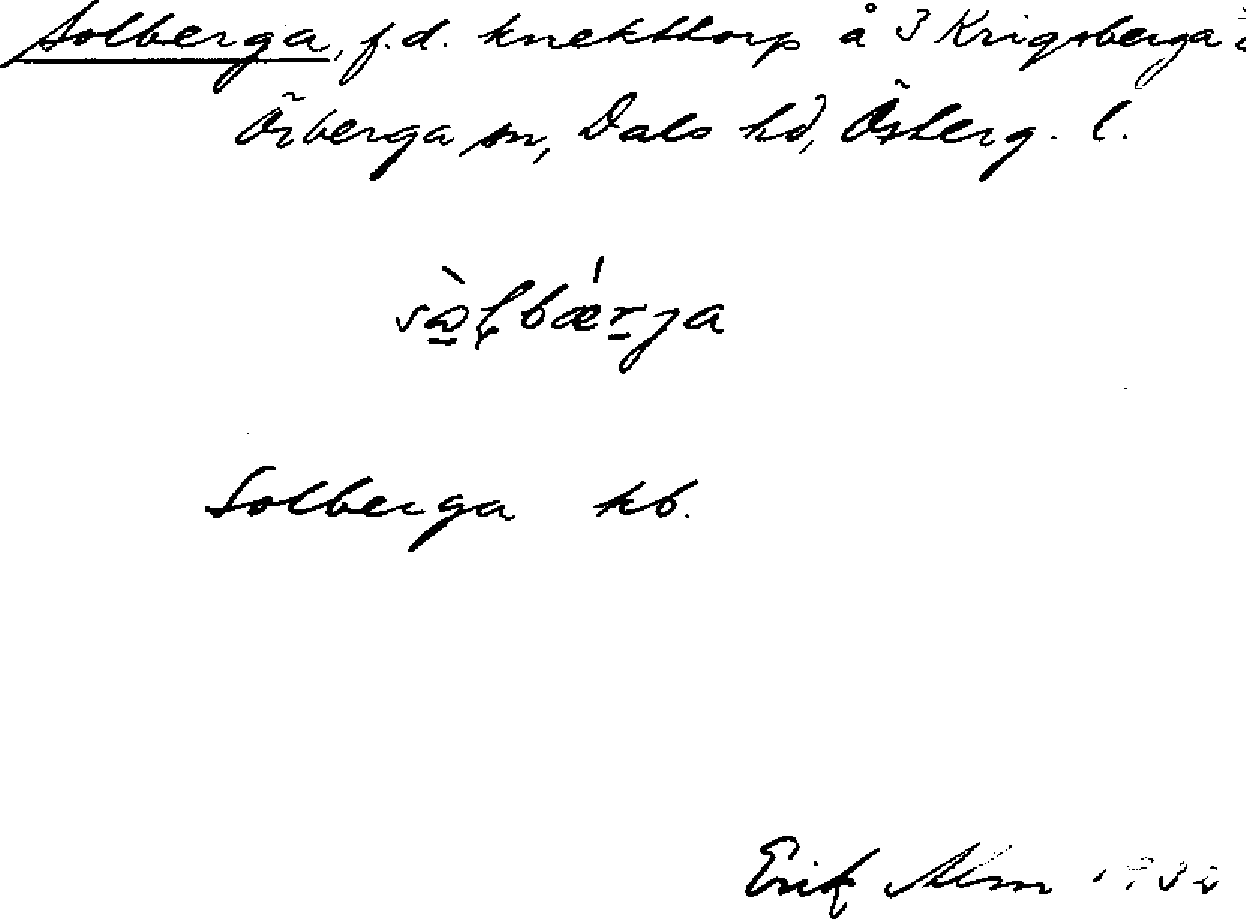 Solberga, f.d. knekttorp å 3 Krigsberga i
Örberga sn, Dals hd, Österg. l.
sὼl̥bǽrja
Solberga kb.
Erik Alm 1932